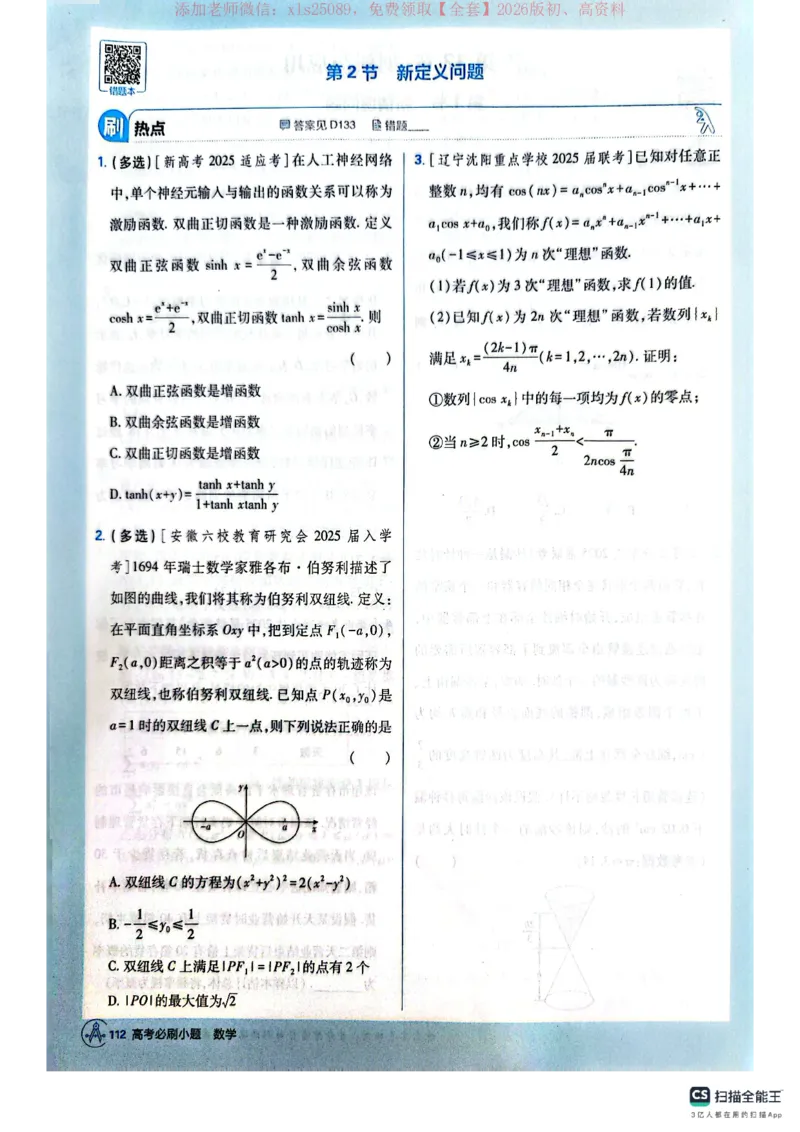 添加老师微信：xls25089，免费领取【全套】2026版初、高资料
错题本
第2节 新定义问题
刷 热点
答案见D133 错题____
1. (多选)[新高考2025适应考]在人工神经网络
中,单个神经元输入与输出的函数关系可以称为
激励函数. 双曲正切函数是一种激励函数. 定义
双曲正弦函数 sinh x = (e^x-e^{-x})/2, 双曲余弦函数
cosh x = (e^x+e^{-x})/2, 双曲正切函数 tanh x = sinh x/cosh x. 则
( )
A. 双曲正弦函数是增函数
B. 双曲余弦函数是增函数
C. 双曲正切函数是增函数
D. tanh(x+y) = (tanh x+tanh y)/(1+tanh xtanh y)
2. (多选)[安徽六校教育研究会2025届入学
考]1694年瑞士数学家雅各布·伯努利描述了
如图的曲线,我们将其称为伯努利双纽线. 定义:
在平面直角坐标系Oxy中,把到定点F₁(-a,0),
F₂(a,0)距离之积等于a²(a>0)的点的轨迹称为
双纽线,也称伯努利双纽线. 已知点P(x₀,y₀)是
a=1时的双纽线C上一点,则下列说法正确的是
( )
y
-a O a x
A. 双纽线C的方程为(x²+y²)²=2(x²-y²)
B. -1/2≤y₀≤1/2
C. 双纽线C上满足|PF₁|=|PF₂|的点有2个
D. |PO|的最大值为√2
3. [辽宁沈阳重点学校2025届联考]已知对任意正
整数n,均有cos(nx)=aₙcosⁿx+aₙ₋₁cosⁿ⁻¹x+⋯+
a₁cos x+a₀,我们称f(x)=aₙxⁿ+aₙ₋₁xⁿ⁻¹+⋯+a₁x+
a₀(-1≤x≤1)为n次“理想”函数.
(1)若f(x)为3次“理想”函数,求f(1)的值.
(2)已知f(x)为2n次“理想”函数,若数列{xₖ}
满足xₖ=(2k-1)π/4n(k=1,2,⋯,2n). 证明:
①数列{cos xₖ}中的每一项均为f(x)的零点;
②当n≥2时,cos (xₙ₋₁+xₙ)/2<π/(2ncos π/4n).
112 高考必刷小题 数学
CS 扫描全能王
3亿人都在用的扫描App